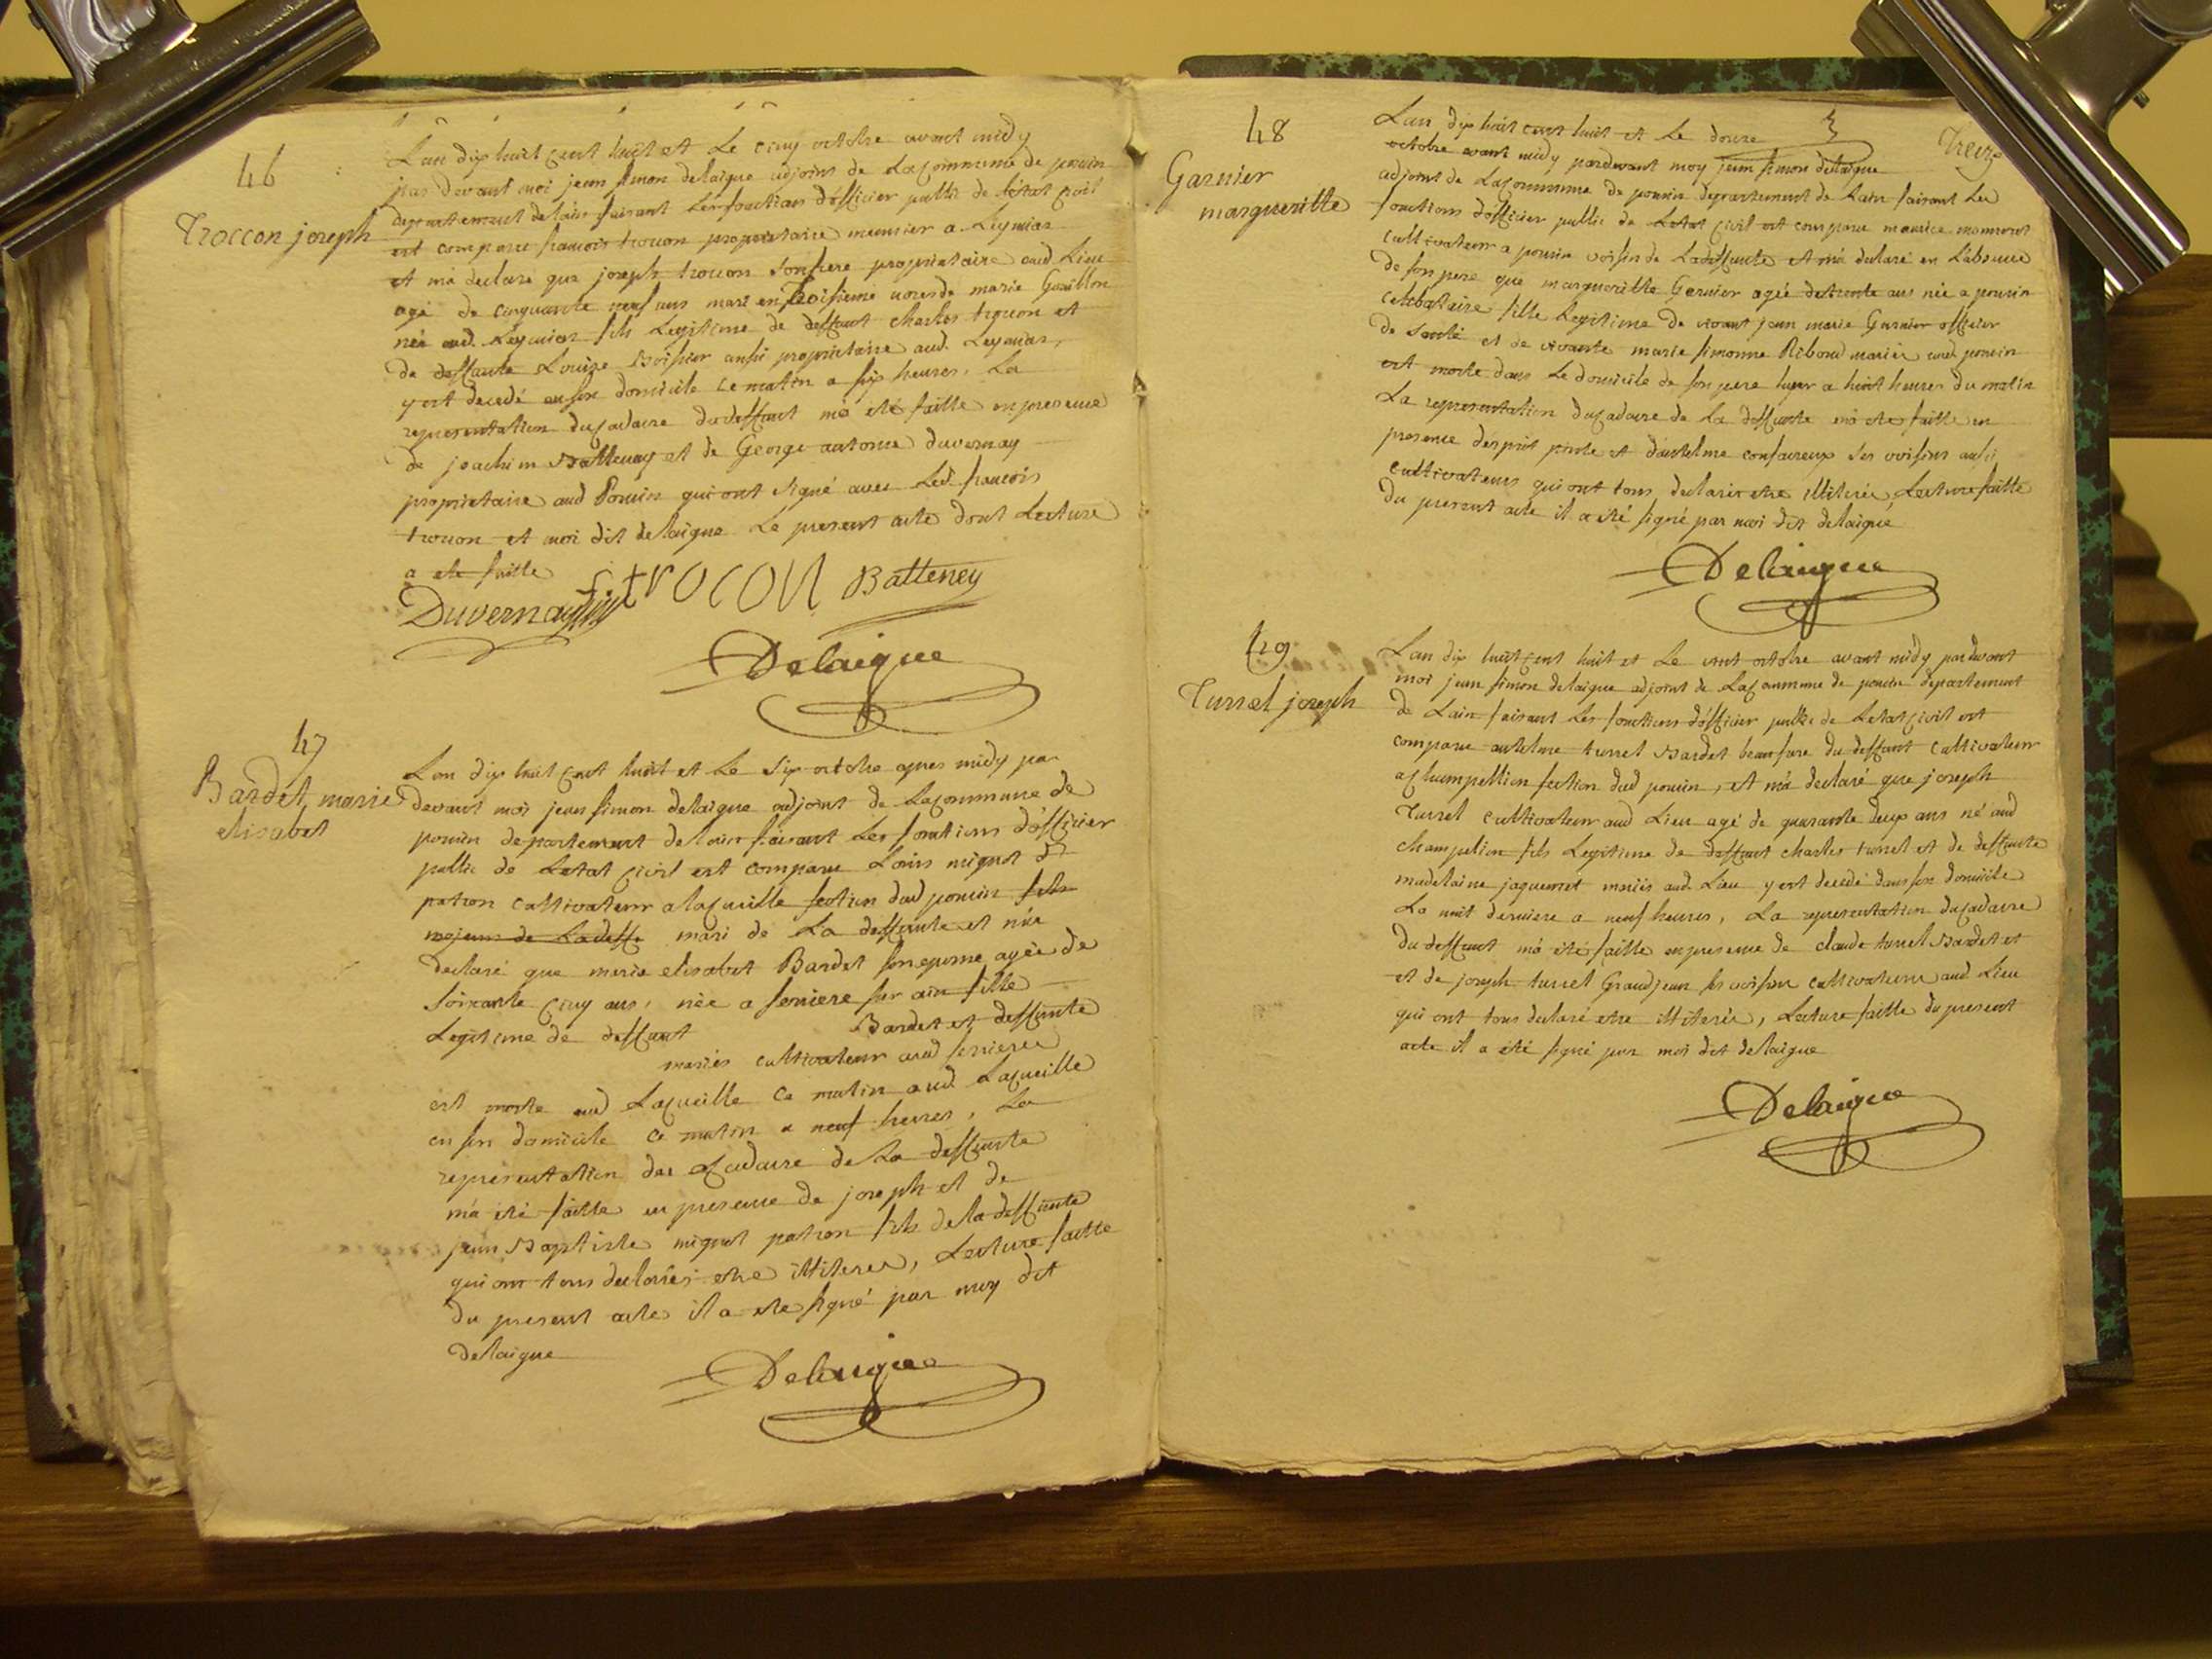 46
Troccon joseph
Lan dix huit cent huit et Le cinq octobre avant midy
par devant moi jean simon delaigue adjoint de La commune de poncin
departement de lain faisant Les fonctions d'officier public de L'état civil
est comparu francois trocon propriétaire meunier a Leymiaz
et m'a declaré que joseph trocon son frere propriétaire aud. Lieu
agé de cinquante neuf ans mari en troisieme noces de marie Guillon
né aud. Leymiaz fils Legitime de deffunt charles trocon et
de deffunte Louise Boissier aussi propriétaire aud. Leymiaz,
y est decedé en son domicile ce matin a six heures. La
representation du cadavre du deffunt m'a été faitte en presence
de joachim Batteney et de George antoine duvernay
propriétaire aud Poncin qui ont signé avec Led. francois
trocon et moi dit delaigue Le present acte dont Lecture
a ete faitte
Duvernay f trocon Batteney
Delaigue
47
Bardet marie
elisabet
Lan dix huit cent huit et Le six octobre apres midy par
devant moi jean simon delaigue adjoint de La commune de
poncin departement de lain faisant Les fonctions d'officier
public de Letat civil est comparu Louis mignot dt
patron cultivateur a lacueille section dud poncin fils
majeur de La deffte mari de La deffunte et m'a
declaré que marie elisabet Bardet son epouse agée de
soixante cinq ans, née a serriere sur ain fille
Legitime de deffunt Bardet et deffunte
mariés cultivateur aud serriere
est morte aud Lacueille ce matin aud. Lacueille
en son domicile ce matin a neuf heures, La
representation du cadavre de La deffunte
m'a été faitte en presence de joseph et de
jean Baptiste mignot patron fils de la deffunte
qui ont tous declarés etre illiteres, Lecture faitte
du present acte il a ete signé par moy dit
delaigue
Delaigue
Treize
48
Garnier
margueritte
Lan dix huit cent huit et Le douze
octobre avant midy pardevant moy jean simon delaigue
adjoint de La commune de poncin departement de Lain faisant Les
fonctions d'officier public de Letat civil est comparu maurice
cultivateur a poncin voisin de La deffunte et m'a declaré en L'absence
de son pere que margueritte Garnier agée de trente ans née a poncin
celibataire fille Legitime de vivant jean marie Garnier officier
de santé et de vivante marie simonne Riboud mariés aud poncin
est morte dans Le domicile de son pere hyer a huit heures du matin
La representation du cadavre de La deffunte m'a ete faitte en
presence desprit et d'antelme ses voisins aussi
cultivateurs qui ont tous declarés etre illiterés, Lecture faitte
du present acte il a été signé par moi dit delaigue
Delaigue
49
Turrel joseph
Lan dix huit cent huit et Le vint octobre avant midy pardevant
moi jean simon delaigue adjoint de La commune de poncin departement
de Lain faisant Les fonctions d'officier public de Letat civil est
comparu antelme turrel Bardet beaufrere du deffunt cultivateur
a champellion section dud poncin, et m'a declaré que joseph
Turrel cultivateur aud Lieu agé de quarante deux ans né aud
champelion fils Legitime de deffunt charles turrel et de deffunte
madelaine jaquemet mariés aud. Lieu y est decedé dans son domicile
La nuit derniere a neuf heures, La representation du cadavre
du deffunt m'a été faitte en presence de claude turrel Bardet et
et de joseph turrel Grandjean ses voisins cultivateurs aud. Lieu
qui ont tous declaré etre illiterés, Lecture faitte du present
acte il a été signé par moi dit delaigue
Delaigue